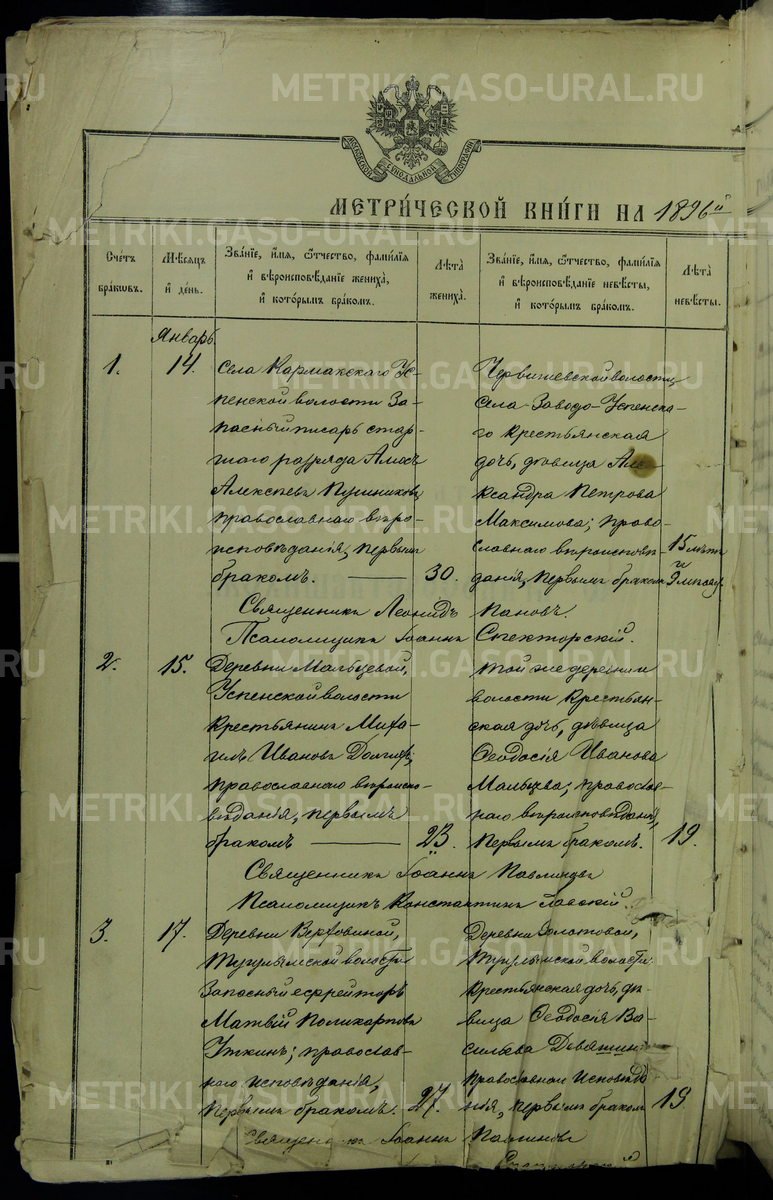 МОСКОВСКОЙ СѴНОДАЛЬНОЙ ТИПОГРАФІИ
МЕТРИ́ЧЕСКОЙ КНИ́ГИ НА 1896й
Сче́тъ бра́ковъ.
Мѣ́сяцъ и҆ де́нь.
Зва́нїе, и҆́мѧ, ѻ҆́тчество, фами́лїѧ и҆ вѣроисповѣ́данїе жениха̀, и҆ кото́рымъ бра́комъ.
Лѣ́та жениха̀.
Зва́нїе, и҆́мѧ, ѻ҆́тчество, фами́лїѧ и҆ вѣроисповѣ́данїе невѣ́сты, и҆ кото́рымъ бра́комъ.
Лѣ́та невѣ́сты.
Январь
1.
14.
Села Кармакскаго Ус-
пенской волости За-
пасный писарь стар-
шаго разряда Амосъ
Алексѣевъ
православнаго вѣро-
исповѣданія, первымъ
бракомъ.
30.
Червишевской волости,
села Заводо-Успенска-
го крестьянская
дочь, дѣвица Але-
ксандра Петрова
Максимова; право-
славнаго вѣроисповѣ-
данія, первымъ бракомъ
15 лѣтъ
и
9 мѣсяц
Священникъ Леонидъ Пановъ.
Псаломщикъ Іоаннъ Спекторскій.
2.
15.
Деревни Мальцевой,
Успенской волости
крестьянинъ Миха-
илъ Ивановъ
православнаго вѣроиспо-
вѣданія, первымъ
бракомъ
23.
той же деревни и
волости крестьян-
ская дочь, дѣвица
Ѳеодосія Иванова
Мальцева; православ-
наго вѣроисповѣданія,
первымъ бракомъ.
19.
Священникъ Іоаннъ
Псаломщикъ Константинъ
3.
17.
Деревни Верховиной,
Тугулымской волости
Запасный ефрейторъ
Матвѣй Поликарповъ
Уткинъ; православ-
наго исповѣданія,
первымъ бракомъ.
27.
Деревни Золотовой,
Тугулымской волости
крестьянская дочь, дѣ-
вица Ѳеодосія Ва-
сильева
православнаго исповѣда-
нія, первымъ бракомъ
19
Священникъ Іоаннъ